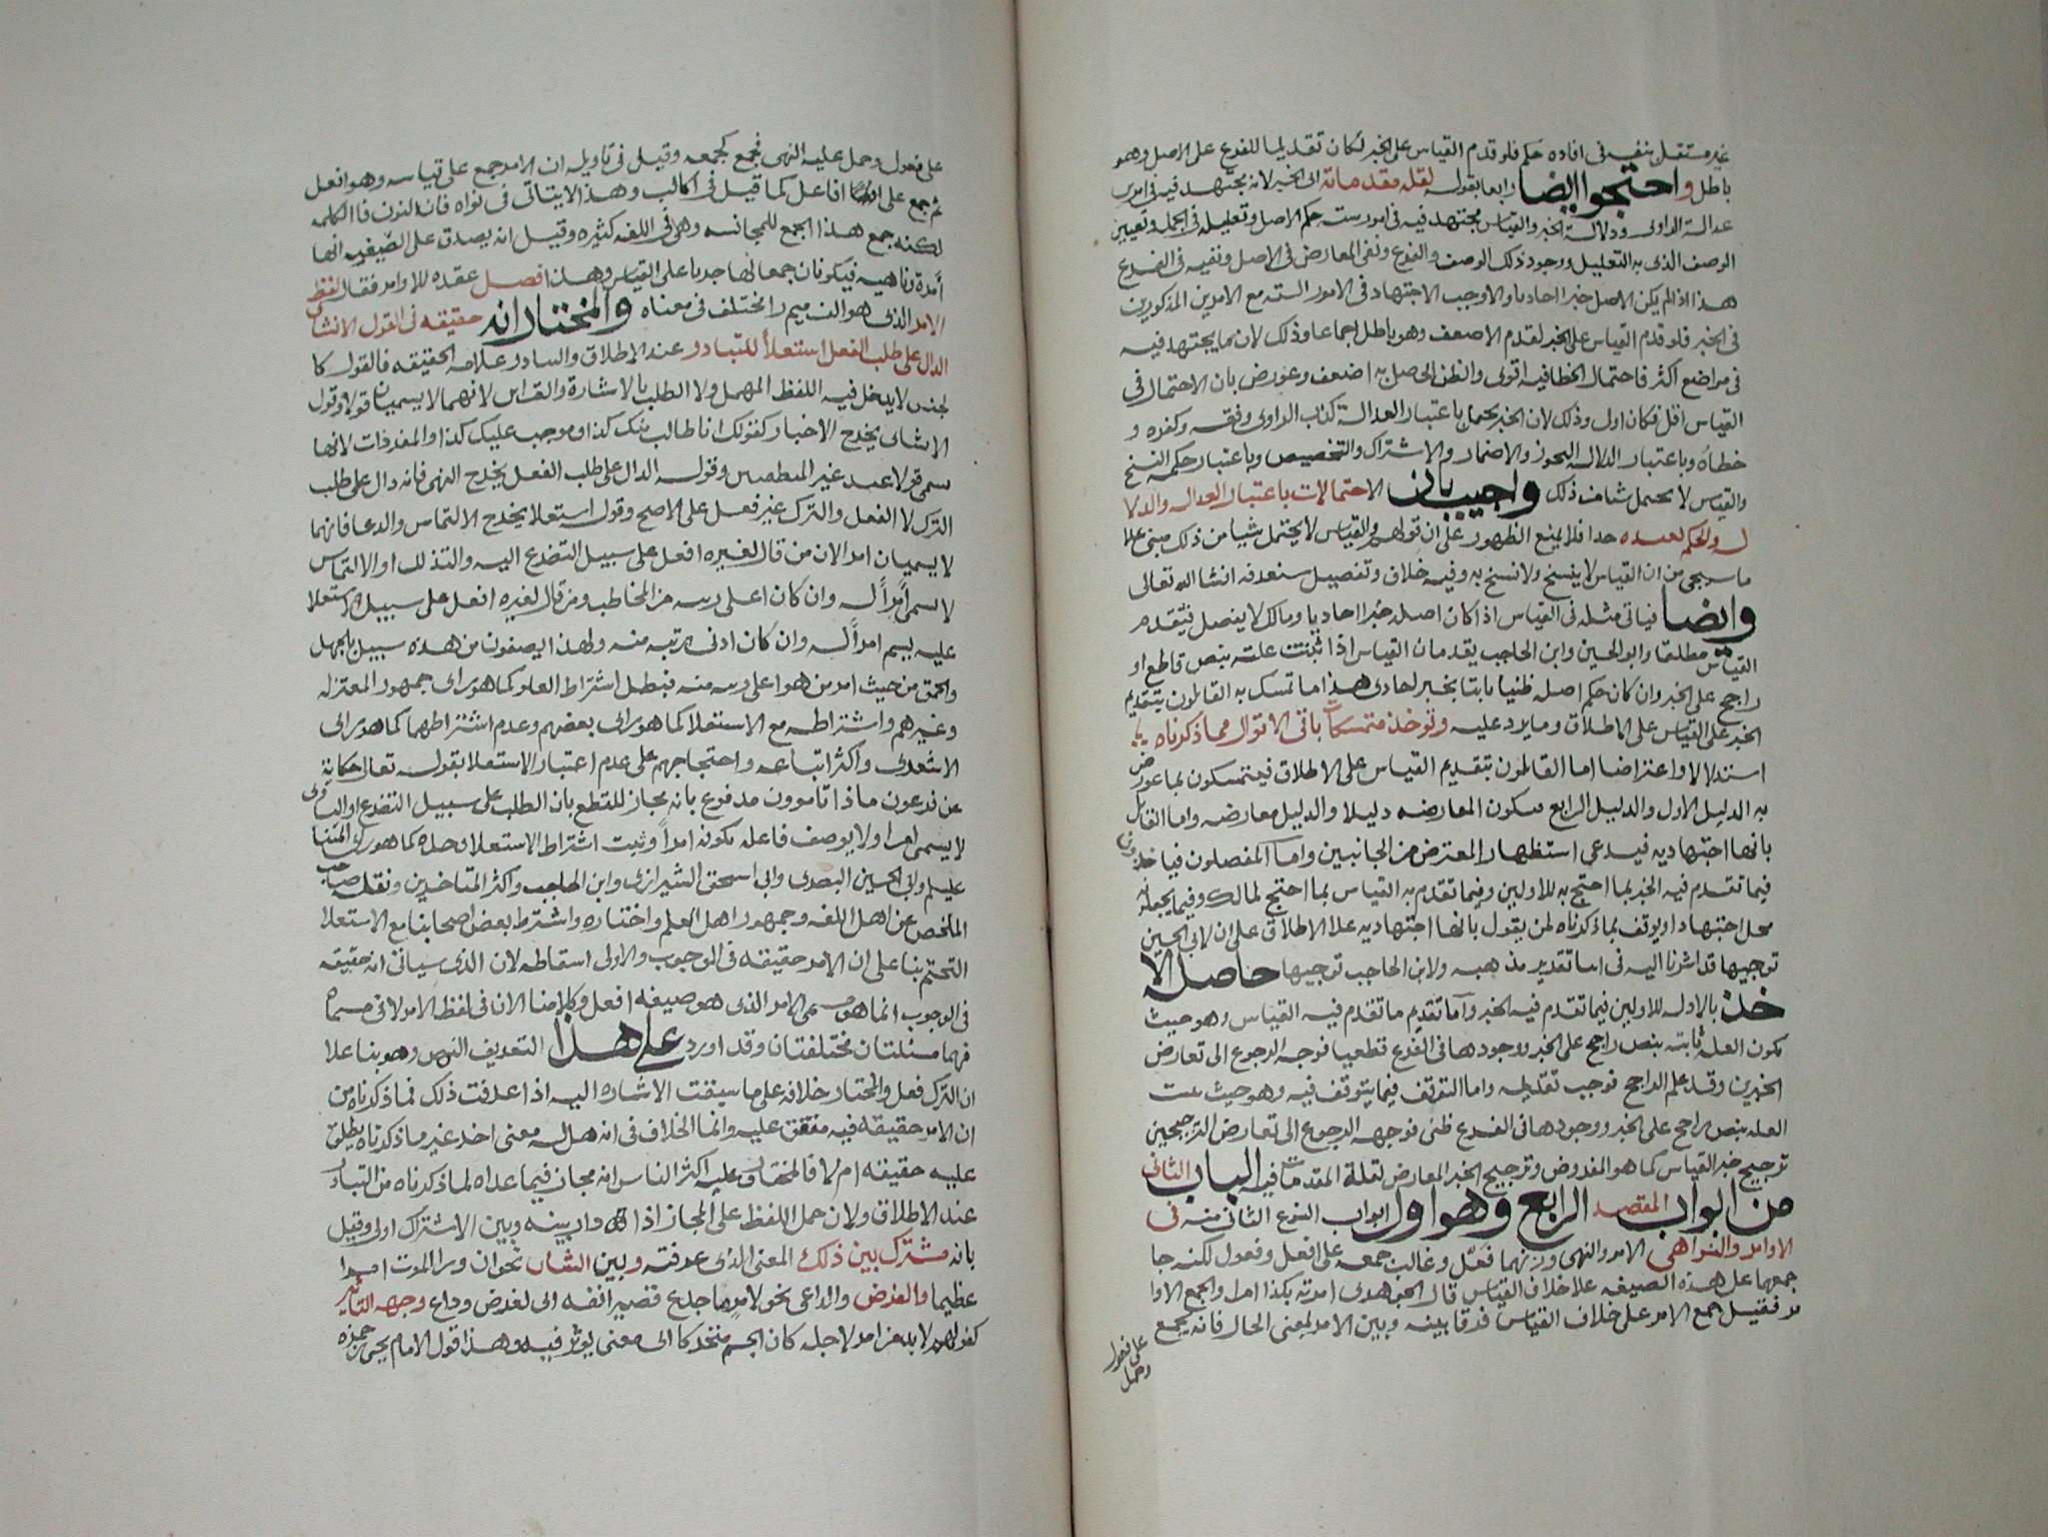 غير مستقل بنفسه فى افاده حكم فلو قدم القياس على الخبر لكان تقديما للفرع على الاصل وهو
باطل واحتجوا ايضا رابعا بقوله لقلة مقدماته اى الخبر لانه يجتهد فيه فى امرين
عدالة الراوى ودلالة الخبر والقياس مجتهد فيه فى امور ستة حكم الاصل وتعليله فى الجملة وتعيين
الوصف الذى به التعليل ووجود ذلك الوصف والفرع ونفى المعارض فى الاصل ونفيه فى الفرع
هذا اذا لم يكن الاصل خبرا احاديا والا وجب الاجتهاد فى الامور الستة مع الامرين المذكورين
فى الخبر فلو قدم القياس على الخبر لقدم الاضعف وهو باطل اجماعا وذلك لان ما يجتهد فيه
فى مواضع اكثر فاحتمال الخطا فيه اقوى والظن الحاصل به اضعف وعورض بان الاحتمال فى
القياس اقل فكان اولى وذلك لان الخبر يحتمل باعتبار العدالة كذب الراوى وفسقه وكفره و
خطاه وباعتبار الدلالة التجوز والاضمار والاشتراك والتخصيص وباعتبار حكمه النسخ
والقياس لا يحتمل شيئا من ذلك واجيب بان الاحتمالات باعتبار العدالة والدلا
لة والحكم بعيده جدا فلا يمنع الظهور على ان قولهم والقياس لا يحتمل شيا من ذلك مبنى علا
ما سيجى من ان القياس لا ينسخ ولا نسخ به وفيه خلاف وتفصيل ستعرفه انشا الله تعالى
وايضا فياتى مثله فى القياس اذا كان اصله خبرا احاديا ومالك لا يفصل فيقدم
القياس مطلقا وابو الحسين وابن الحاجب يقدمان القياس اذا ثبتت علته بنص قاطع او
راجح على الخبر وان كان حكم اصله ظنيا ثابتا بخبر احادى هذا ما تمسك به القائلون بتقديم
الخبر على القياس على الاطلاق وما يرد عليه وتوخذ متمسكات باقى الاقوال مما ذكرناه
استدلالا واعتراضا اما القائلون بتقديم القياس على الاطلاق فيتمسكون بما عورض
به الدليل الاول والدليل الرابع فتكون المعارضه دليلا والدليل معارضه واما القائلون
بانها اجتهاديه فيدعى استظهار المعترض من الجانبين واما المفصلون فياخذون
فيما تقدم فيه الخبر بما احتج به للاولين وفيما تقدم به القياس بما احتج لمالك وفيما يجعله
محل اجتهاد او يوقف بما ذكرناه لمن يقول بانها اجتهاديه علا الاطلاق على ان لابى الحسين
توجيها قد اشرنا اليه فى اثنا تقدير مذهبه ولابن الحاجب توجيها حاصله الا
خذ بالادله للاولين فيما تقدم فيه الخبر واما تقديم ما تقدم فيه القياس وهو حيث
تكون العلة ثابته بنص راجح على الخبر ووجودها فى الفرع قطعيا فوجه الرجوع الى تعارض
الخبرين وقد علم الراجح فوجب تقديمه واما التوقف فيما يتوقف فيه وهو حيث تثبت
العله بنص راجح على الخبر ووجودها فى الفرع ظنى فوجهه الرجوع الى تعارض الترجيحين
ترجيح خبر القياس كما هو المفروض وترجيح الخبر المعارض لقلة المقدمات فيه الباب الثانى
من ابواب المقصد الرابع وهو اول ابواب النوع الثانى منه فى
الاوامر والنواهى الامر والنهى وزنهما فعل وغالب جمعه على افعل وفعول لكنه جا
جمعها على هذه الصيغه علا خلاف القياس قال الجوهرى امرته بكذا امرا والجمع الاوا
مر فقيل جمع الامر على خلاف القياس فرقا بينه وبين الامر بمعنى الحال فانه يجمع
على فعول
وحمل
على فعول وحمل عليه النهى فجمع كجمعه وقيل فى تاويله ان الامر جمع على قياسه وهو افعل
ثم جمع على افاعل كما قيل فى اكالب وهذا لا يتاتى فى نواه فان النون فا الكلمه
لكنه جمع هذا الجمع للمجانسه وهى فى اللغه كثيره وقيل انه يصدق على الصيغه انها
آمرة وناهيه فيكونان جمعا لها جريا على القياس وهذا فصل عقده للاوامر فقال لفظ
الامر الذى هو الف ميم را مختلف فى معناه والمختار انه حقيقه فى القول الانشائى
الدال على طلب الفعل استعلاً للتبادر عند الاطلاق والتبادر علامه الحقيقه فالقول كا
لجنس لا يدخل فيه اللفظ المهمل ولا الطلب بالاشارة والقراين لانهما لا يسميان قولا وقول
الانشائى يخرج الاخبار كقولك انا طالب منك كذا وموجب عليك كذا والمفردات لانها
تسمى قولا عند غير المنطقيين وقوله الدال على طلب الفعل يخرج النهى فانه دال على طلب
الترك لا الفعل والترك غير فعل على الاصح وقوله استعلا يخرج الالتماس والدعا فانهما
لا يسميان امرا لان من قال لغيره افعل على سبيل التضرع اليه والتذلل او الالتماس
لا يسمى امراً له وان كان اعلى رتبه من المخاطب ومن قال لغيره افعل على سبيل الاستعلا
عليه يسم امراً له وان كان ادنى رتبه منه ولهذا يصفون من هذه سبيله بالجهل
والحمق من حيث امر من هو اعلى رتبه منه فبطل اشتراط العلو كما هو راى جمهور المعتزله
وغيرهم واشتراطه مع الاستعلا كما هو راى بعضهم وعدم اشتراطهما كما هو راى
الاشعرى واكثر اتباعه واحتجاجهم على عدم اعتبار الاستعلا بقوله تعالى حكاية
عن فرعون ماذا تامرون مدفوع بانه مجاز للقطع بان الطلب على سبيل التضرع او التساوى
لا يسمى امرا ولا يوصف فاعله بكونه امراً وثبت اشتراط الاستعلا وحده كما هو راى ائمتنا
عليلم وابى الحسين البصرى وابى اسحق الشيرازى وابن الحاجب واكثر المتاخرين ونقله صاحب
الملخص عن اهل اللغه وجمهور اهل العلم واختاره واشترط بعض اصحابنا مع الاستعلا
التحتم بنا على ان الامر حقيقه فى الوجوب والاولى اسقاطه لان الذى سياتى انه حقيقه
فى الوجوب انما هو مسمى الامر الذى هو صيغه افعل وكلامنا الان فى لفظ الامر لا فى مسماه
فهما مسئلتان مختلفتان وقد اورد على هذا التعريف النهى وهو بنا علا
ان الترك فعل والمختار خلافه على ما سبقت الاشاره اليه اذا عرفت ذلك فما ذكرناه من
ان الامر حقيقه فيه متفق عليه وانما الخلاف فى انه هل له معنى اخر غير ما ذكرناه يطلق
عليه حقيقه ام لا فالمختار وعليه اكثر الناس انه مجاز فيما عداه لما ذكرناه من التبادر
عند الاطلاق ولان حمل اللفظ على المجاز اذا دار بينه وبين الاشتراك اولى وقيل
بانه مشترك بين ذلك المعنى الذى عرفته وبين الشان نحو ان ورا الموت امرا
عظيما والغرض والداعى نحو لامر ما جدع قصير انفه اى لغرض وداع وجهه التاثير
كقولهم لا بد من امر لاجله كان الجسم متحركا اى معنى يوثر فيه وهذا قول الامام يحيى بن حمزه